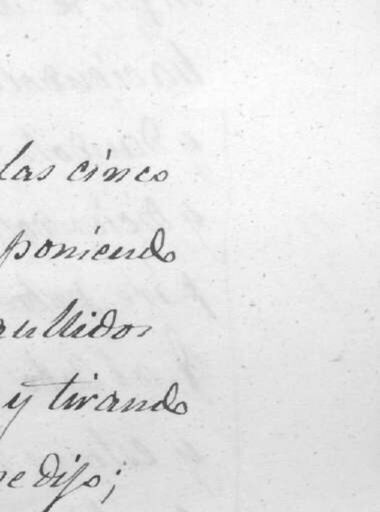 las cinco
poniendo
aullidos
y tirando
me dijo;